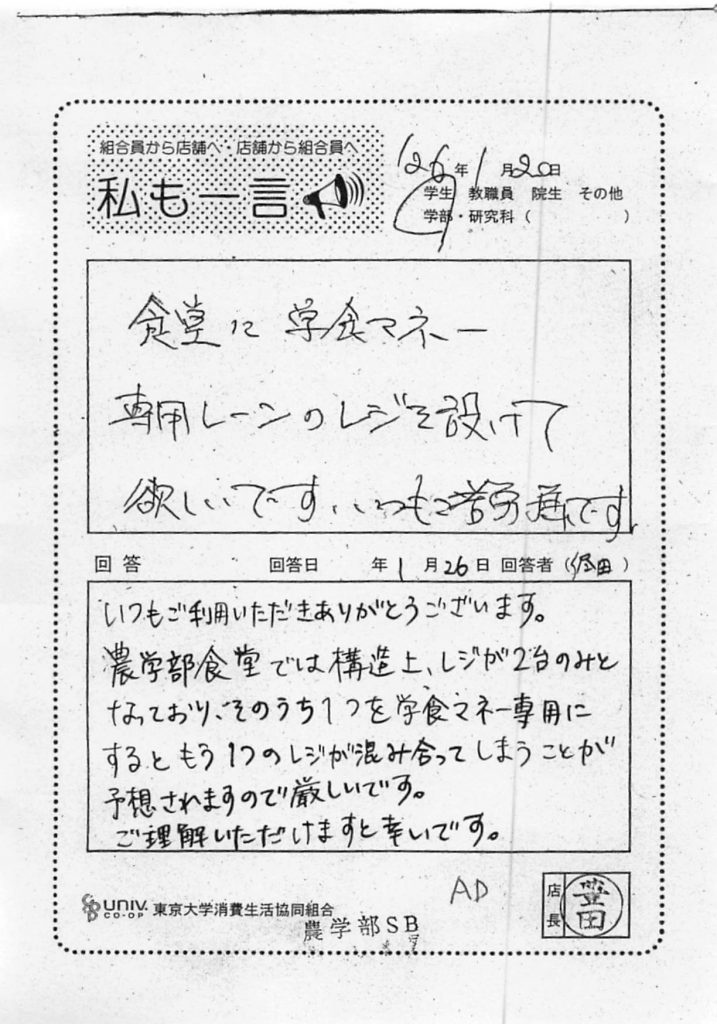 組合員から店舗へ・店舗から組合員へ
私も一言
126年1月20日
学生 教職員 院生 その他
学部・研究科（ ）
食堂に 学食マネー
専用レーンのレジを設けて
欲しいです。いつもご苦労様です
回答 回答日 年1月26日 回答者（ 田）
いつもご利用いただきありがとうございます。
農学部食堂では構造上、レジが2台のみと
なっており、そのうち1つを学食マネー専用に
するともう1つのレジが混み合ってしまうことが
予想されますので厳しいです。
ご理解いただけますと幸いです。
AD
店長
豊田
UNIV. CO-OP 東京大学消費生活協同組合
農学部SB